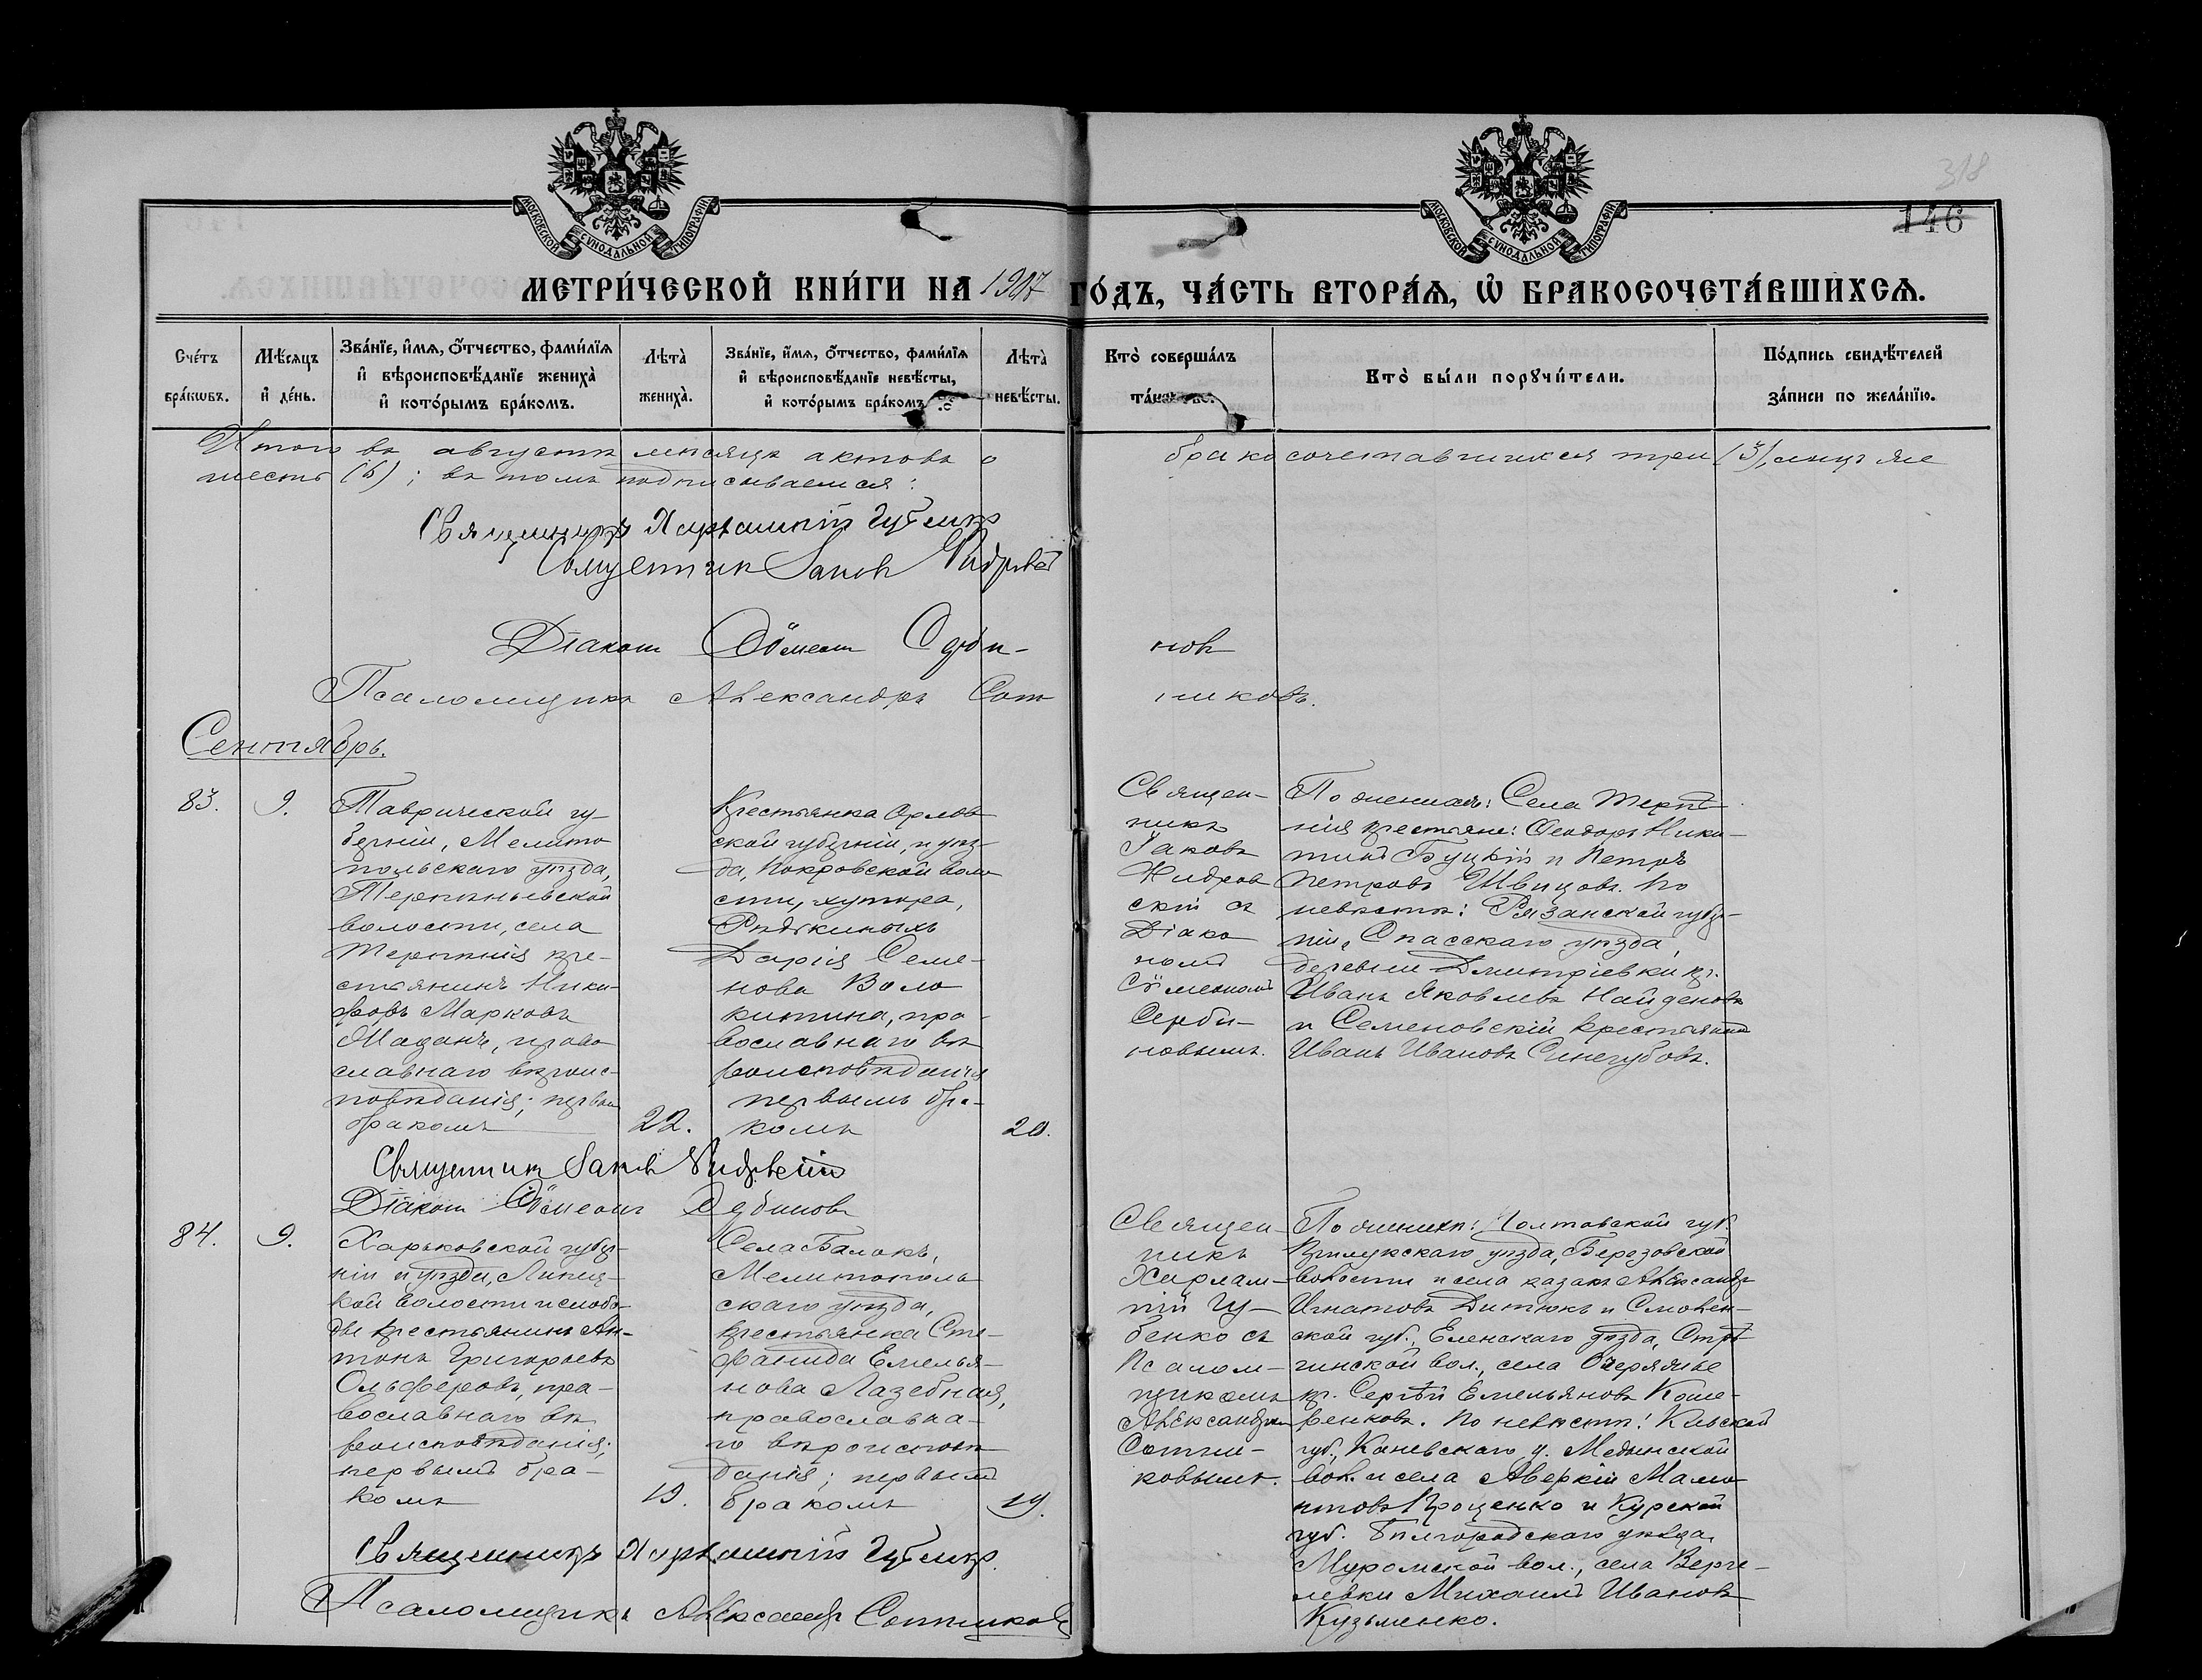 318
146
МОСКОВСКОЙ СѴНОДАЛЬНОЙ ТИПОГРАФІИ
МОСКОВСКОЙ СѴНОДАЛЬНОЙ ТИПОГРАФІИ
МЕТРИ́ЧЕСКОЙ КНИ́ГИ НА 1907 ГО́ДЪ, ЧА́СТЬ ВТОРА́Я, Ѿ БРАКОСОЧЕТА́ВШИХСЯ.
Сче́тъ бра́кѡвъ.
Мѣ́сяцъ и҆ де́нь.
Зва́нїе, и҆́мя, ѻ҆́тчество, фами́лїя и҆ вѣроисповѣ́данїе жениха̀ и҆ кото́рымъ бра́комъ.
Лѣта̀ жениха̀.
Зва́нїе, и҆́мя, ѻ҆́тчество, фами́лїя и҆ вѣроисповѣ́данїе невѣ́сты, и҆ кото́рымъ бра́комъ.
Лѣта̀ невѣ́сты.
Кто̀ соверша́лъ та́инство.
Кто̀ бы́ли порꙋчи́тели.
По́дпись свидѣ́телей за́писи по жела́нїю.
Итого въ августѣ мѣсяцѣ актовъ о бракосочетавшихся три (3), лицъ же
шесть (6); въ томъ подписываемся:
Священникъ Харлампій Губенко
Священникъ Іаковъ
Діаконъ Сѵмеонъ Сербиновъ
Псаломщикъ Александръ Сотниковъ.
Сентябрь.
83.
9.
Таврической гу-
берніи, Мелито
польскаго уѣзда,
Терпѣньевской
волости, села
Терпѣнія кре-
стьянинъ Ники-
форъ Марковъ
Маданъ, право
славнаго вѣроис-
повѣданія; первым
бракомъ
22.
Крестьянка Орлов
ской губерніи, и уѣз-
да, Покровской воло
сти, хутора,
Рѣдькиныхъ
Дарія Семе-
нова Воло
китина, пра-
вославнаго вѣ
роисповѣданія
первымъ бра-
комъ
20.
Священ-
никъ
Іаковъ
скій съ
Діако
номъ
Сѵмеономъ
Серби-
новымъ.
По женихѣ: Села Терпѣ-
нія крестьяне: Ѳеодоръ Ники-
тинъ Буцкій и Петръ
Петровъ Швицовъ. По
невѣстѣ: Рязанской губер-
ніи, Спасскаго уѣзда,
деревни Дмитріевки кр.
Иванъ Яковлевъ Найденовъ
и Семеновскій крестьянинъ
Иванъ Ивановъ Синегубовъ.
Священникъ Іаковъ
Діаконъ Сѵмеонъ Сербиновъ
84.
9.
Харьковской губер-
ніи и уѣзда, Липец-
кой волости и слобо-
ды крестьянинъ Ан-
тонъ Григорьевъ
Ольферовъ, пра-
вославнаго вѣ
роисповѣданія;
первымъ бра-
комъ
19.
Села Балокъ,
Мелитополь
скаго уѣзда,
крестьянка Сте-
фанида Емелья-
нова Лазебная,
православна-
го вѣроисповѣ
данія; первымъ
бракомъ
19.
Священ-
никъ
Харлам-
пій Гу-
бенко съ
Псалом-
щикомъ
Александром
Сотни-
ковымъ.
По женихѣ: Полтавской губ.
Прилукскаго уѣзда, Березовской
волости и села казакъ Александръ
Игнатовъ Дитюкъ и Смолен-
ской губ., Еленскаго уѣзда,
гинской вол., села
кр. Сергѣй Емельяновъ Коше-
ренковъ. По невѣстѣ: Кіевской
губ., Каневскаго у. Мединской
вол. и села Аверкій Мамо
нтовъ Проценко и Курской
губ. Бѣлгородскаго уѣзда,
Муромской вол., села Верге-
левки Михаилъ Ивановъ
Кузьменко.
Священникъ Харлампій Губенко.
Псаломщикъ Александръ Сотниковъ